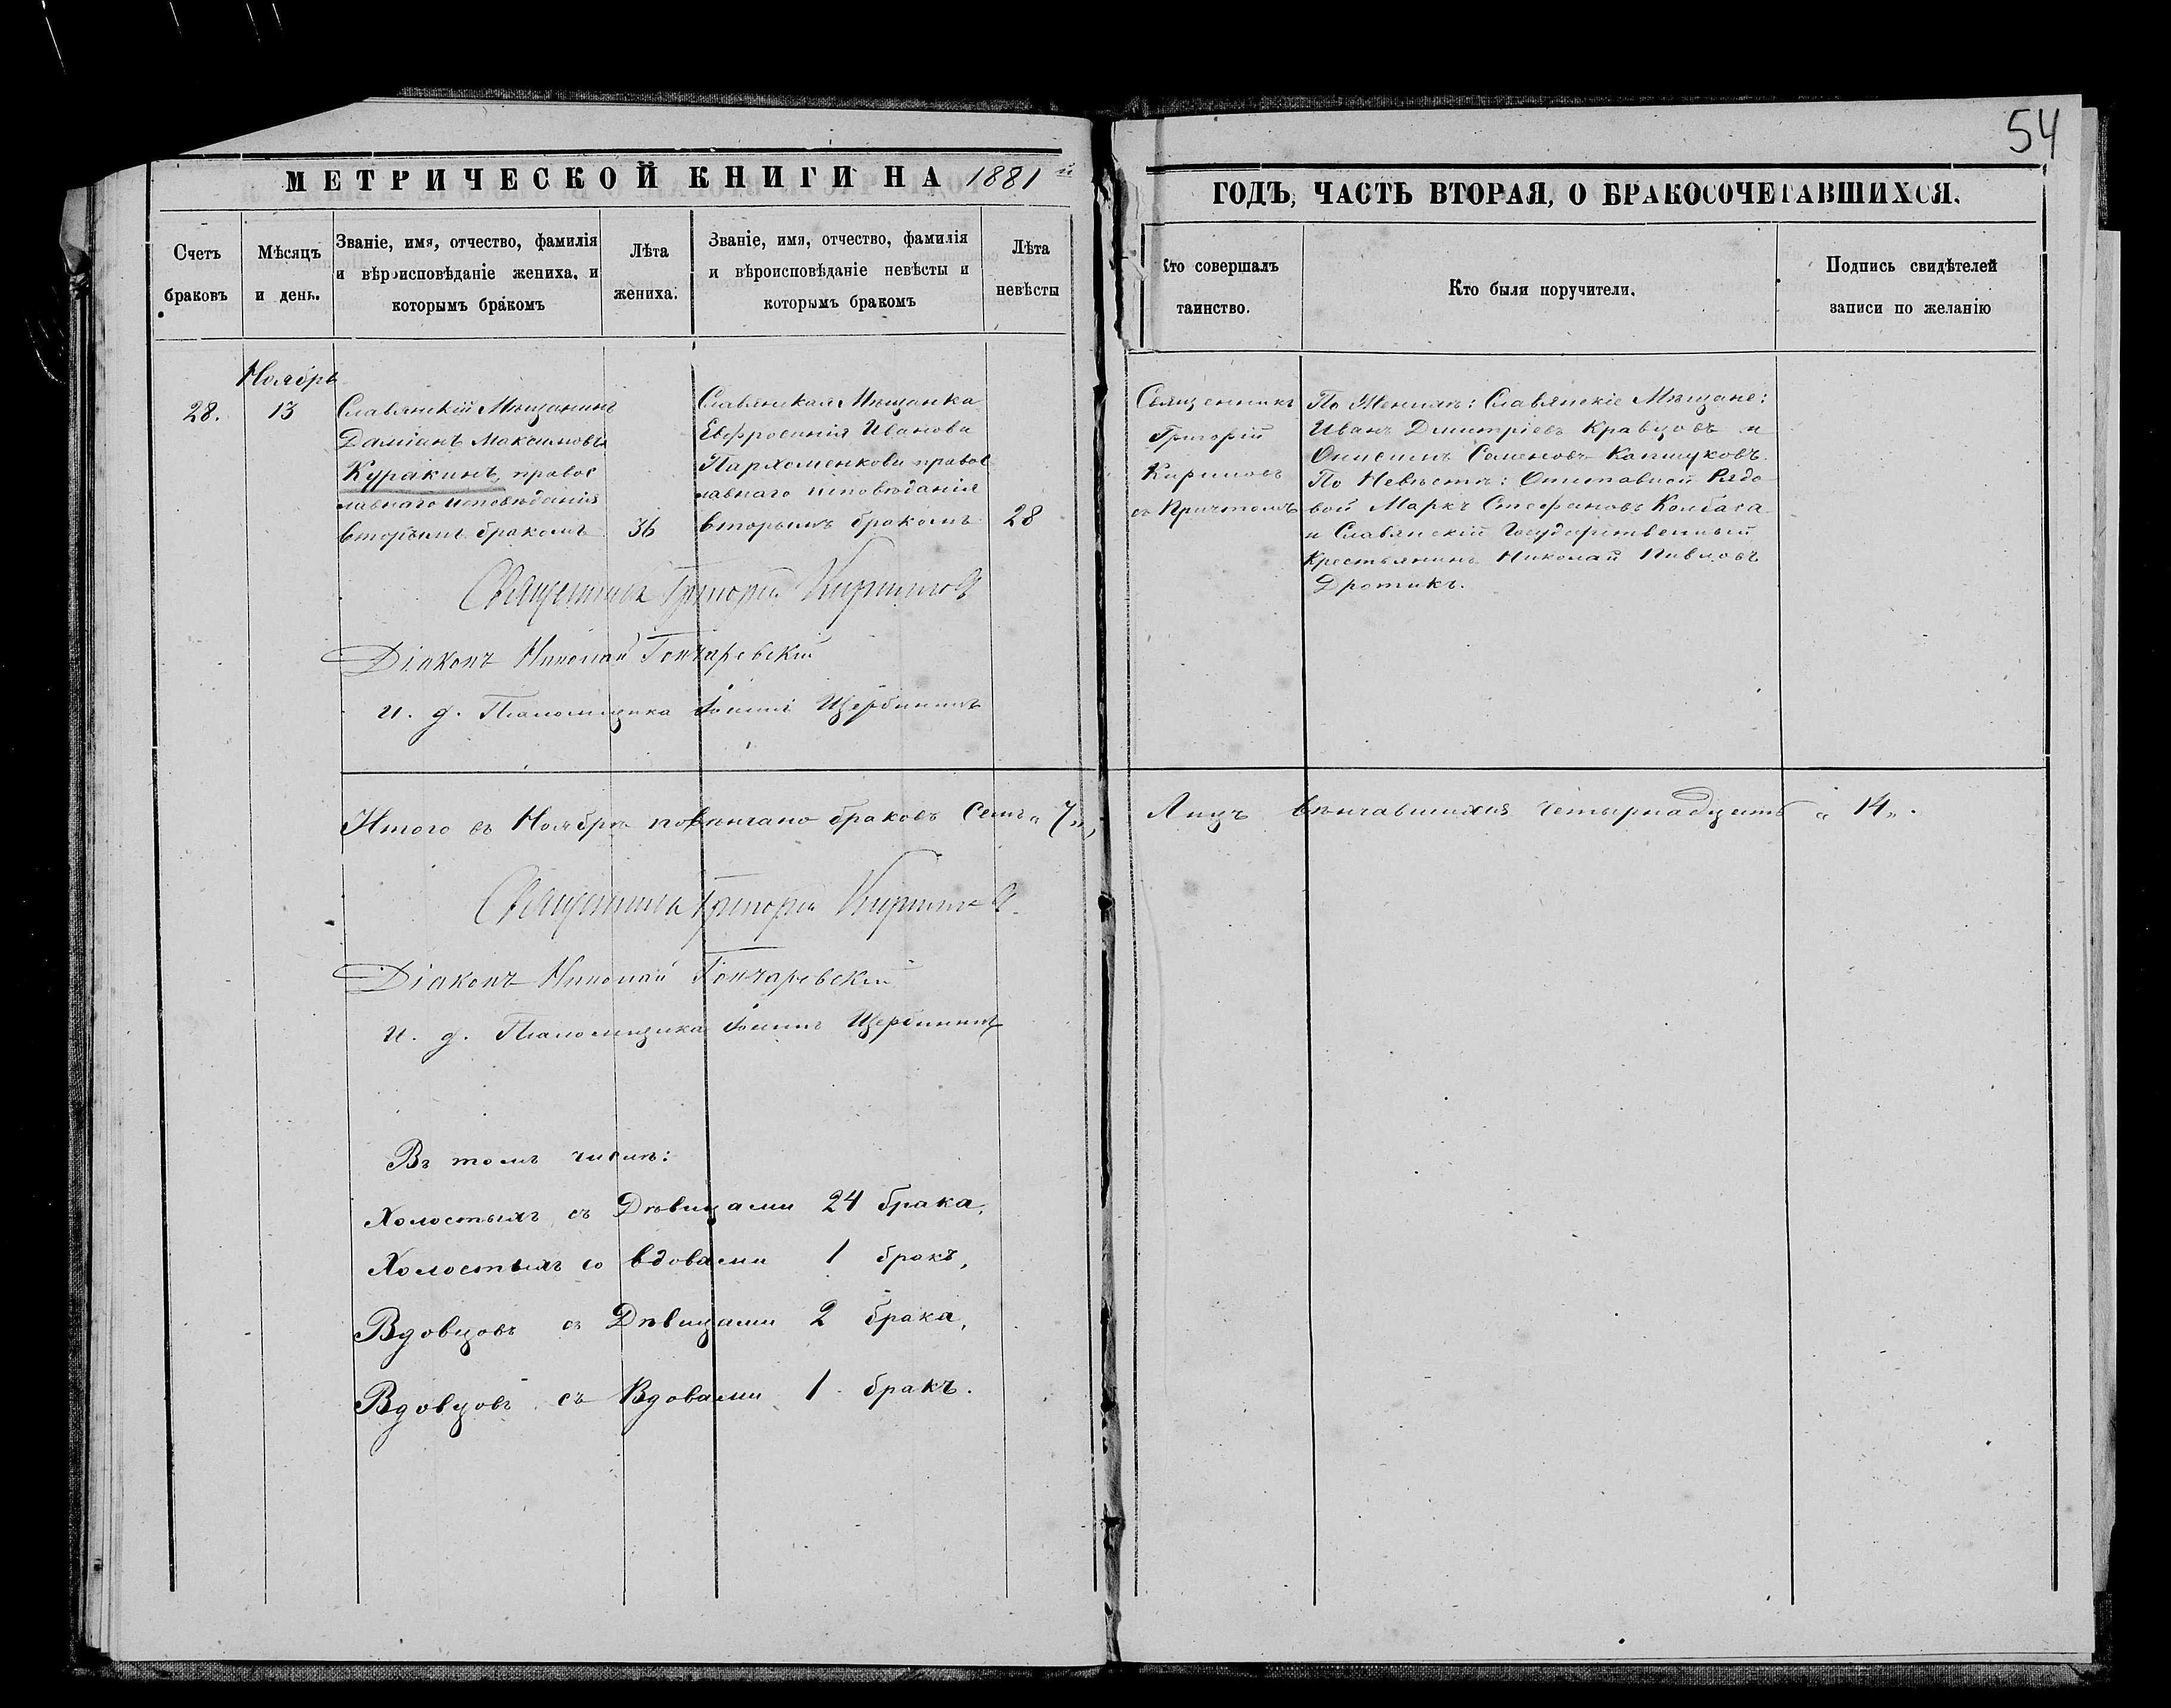 54
МЕТРИЧЕСКОЙ КНИГИ НА 1881й
ГОДЪ, ЧАСТЬ ВТОРАЯ, О БРАКОСОЧЕТАВШИХСЯ.
Счетъ
браковъ
Мѣсяцъ
и день.
Званіе, имя, отчество, фамилія
и вѣроисповѣданіе жениха, и
которымъ бракомъ
Лѣта
жениха.
Званіе, имя, отчество, фамилія
и вѣроисповѣданіе невѣсты и
которымъ бракомъ
Лѣта
невѣсты
Кто совершалъ
таинство.
Кто были поручители.
Подпись свидѣтелей
записи по желанію
28.
Ноябрь
13
Славянскій Мѣщанинъ
Даміанъ Максимовъ
Куракинъ, правос
лавнаго исповѣданія
вторымъ бракомъ
36
Славянская Мѣщанка
Евфросинія Иванова
Пархоменкова правос
лавнаго исповѣданія
вторымъ бракомъ
28
Священникъ
Григорій
Кириловъ
съ Причтомъ
По Женихѣ: Славянскіе Мѣщане:
Иванъ Дмитріевъ Кравцовъ и
Онисимъ Семеновъ Капшуковъ.
По Невѣстѣ: Отставной Рядо
вой Маркъ Стефановъ Колбаса
и Славянскій Государственный
Крестьянинъ Николай Павловъ
Дротикъ.
Священникъ Григорій Кириловъ
Діаконъ Николай Гончаревскій
И. д. Псаломщика Щербининъ
Итого въ Ноябрѣ повѣнчано браковъ Семь „7„,
Лицъ вѣнчавшихся четырнадцать „ 14„.
Священникъ Григорій Кириловъ.
Діаконъ Николай Гончаревскій
И. д. Псаломщика Щербининъ
Въ томъ числѣ:
Холостыхъ съ Дѣвицами 24 брака,
Холостыхъ со вдовами 1 бракъ,
Вдовцовъ съ Дѣвицами 2 брака,
Вдовцовъ съ Вдовами 1 бракъ.